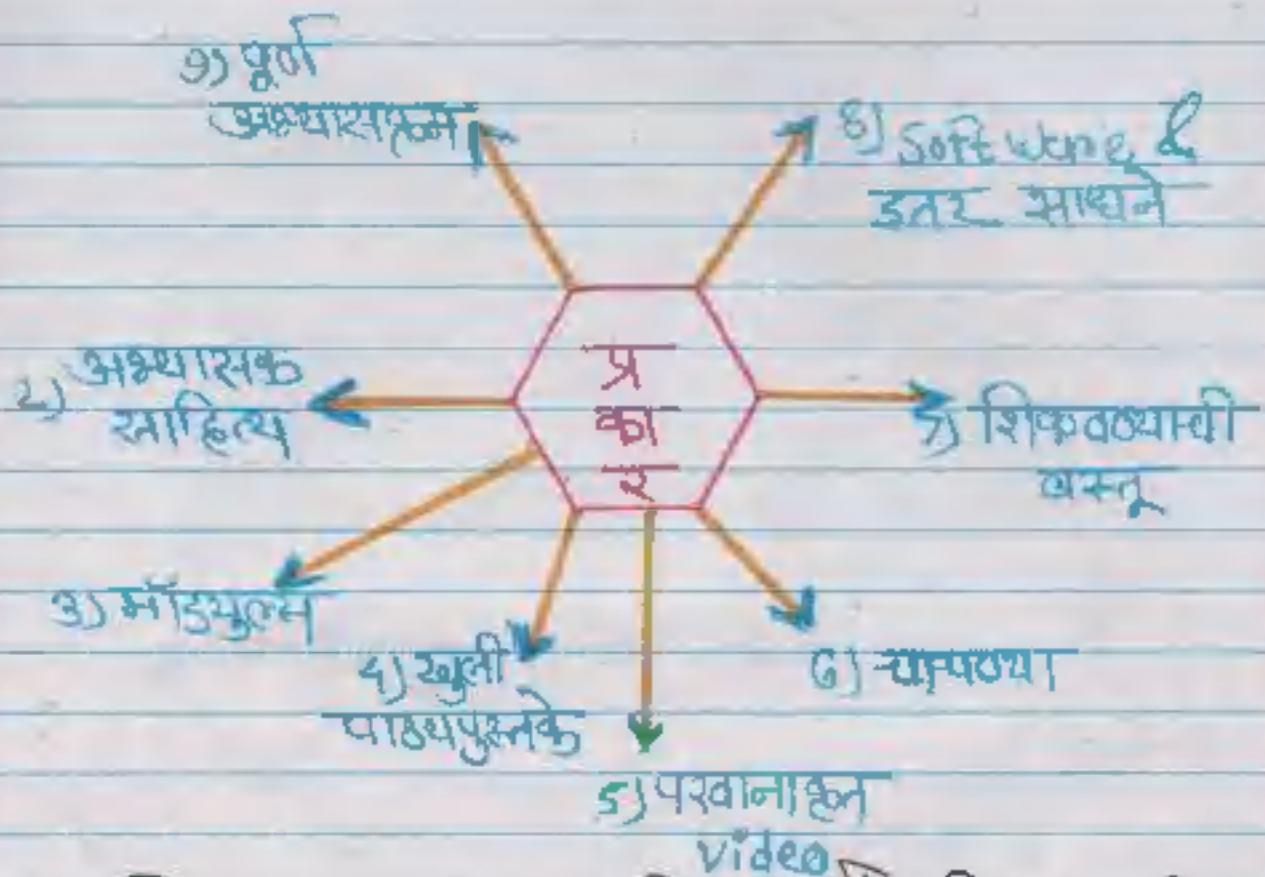 १) पूर्ण
अभ्यासक्रम
2) अभ्यासक
साहित्य
3) मॉड्युल्स
4) खुली
पाठ्यपुस्तके
5) परवानाकृत
video
6) चाचण्या
7) शिकवण्याची
वस्तू
8) Software &
इतर साधने
प्र
का
र